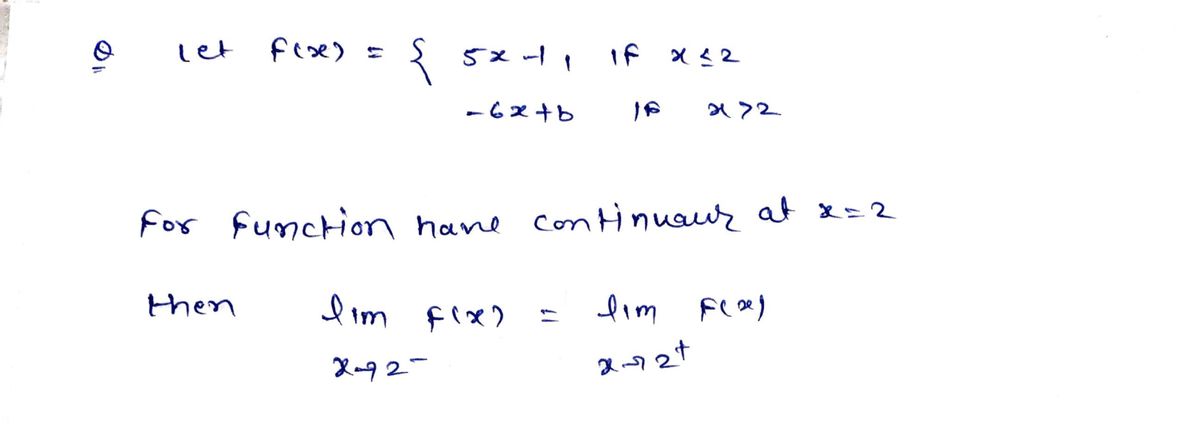 Q let f(x) = { 5x-1, if x ≤ 2
-6x+b if x>2
For function have continuous at x=2
then lim f(x) = lim F(x)
x→2⁻ x→2⁺